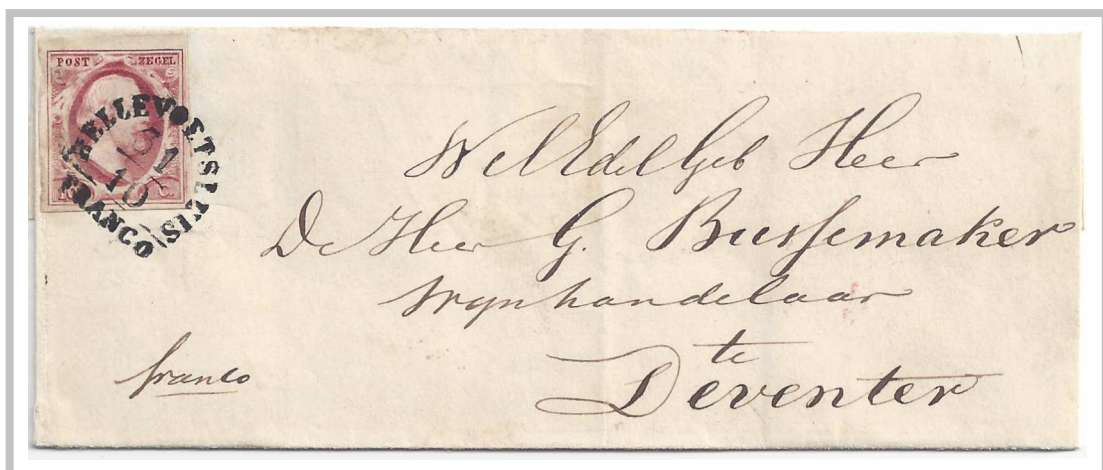 POST ZEGEL
10 C.
HELLEVOETSLUIS
31
10
FRANCO
WelEdelGeb Heer
De Heer G. Bussemaker
Wynhandelaar
te
Deventer
franco